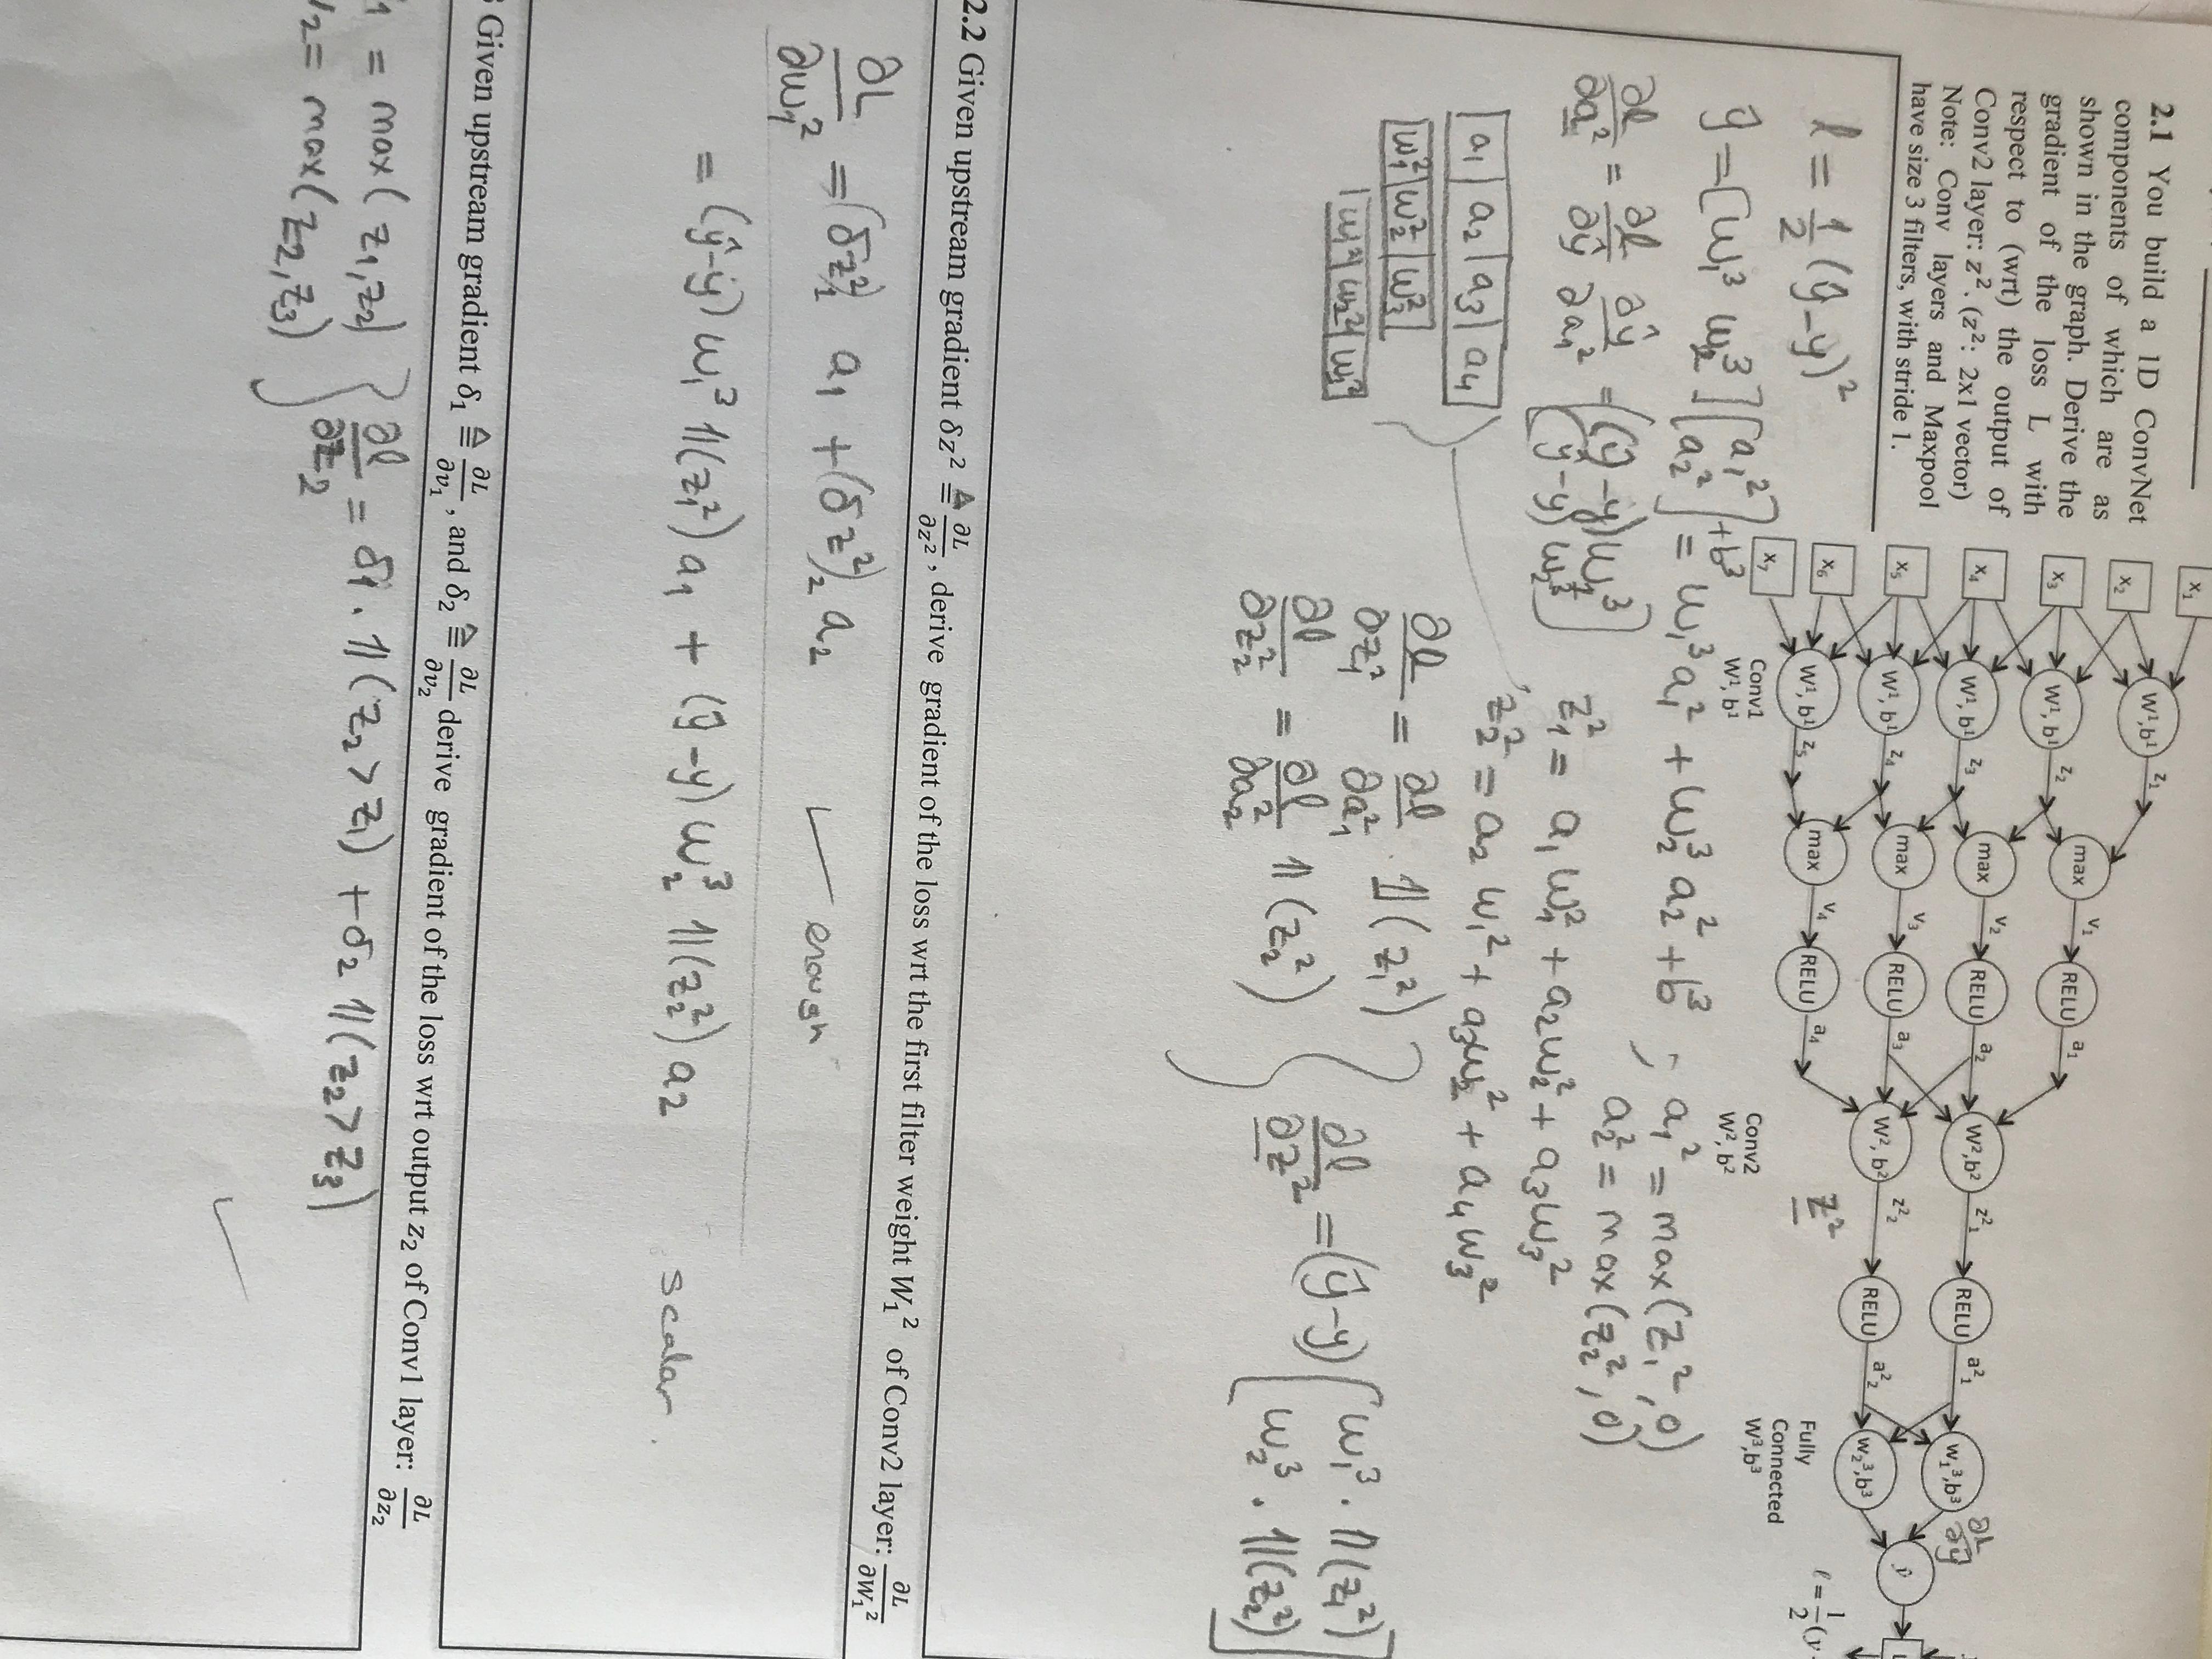 2.1 You build a 1D ConvNet
components of which are as
shown in the graph. Derive the
gradient of the loss L with
respect to (wrt) the output of
Conv2 layer: z². (z²: 2x1 vector)
Note: Conv layers and Maxpool
have size 3 filters, with stride 1.
x₁
x₂
x₃
x₄
x₅
x₆
x₇
W¹,b¹
W¹, b¹
W¹, b¹
W¹, b¹
W¹, b¹
Conv1
W¹, b¹
z₁
z₂
z₃
z₄
z₅
max
max
max
max
v₁
v₂
v₃
v₄
RELU
RELU
RELU
RELU
a₁
a₂
a₃
a₄
W²,b²
W², b²
Conv2
W², b²
z²₁
z²₂
z²
RELU
RELU
a²₁
a²₂
w₁³,b³
w₂³,b³
Fully
Connected
W³,b³
∂L/∂ŷ
ŷ
ℓ = 1/2 (y
ℓ = 1/2 (ŷ-y)²
ŷ = [w₁³ w₂³] [a₁² a₂²] + b³ = w₁³a₁² + w₂³a₂² + b³ ; a₁² = max(z₁², 0)
a₂² = max(z₂², 0)
∂ℓ/∂a² = ∂ℓ/∂ŷ ∂ŷ/∂a₁² = [(ŷ-y)w₁³ (ŷ-y)w₂³]
z₁² = a₁w₁² + a₂w₂² + a₃w₃²
z₂² = a₂w₁² + a₃w₂² + a₄w₃²
a₁ a₂ a₃ a₄
w₁² w₂² w₃²
w₁² w₂² w₃²
∂ℓ/∂z₁² = ∂ℓ/∂a₁² · 𝟙(z₁²)
∂ℓ/∂z₂² = ∂ℓ/∂a₂² 𝟙(z₂²)
∂ℓ/∂z² = (ŷ-y) [w₁³ · 𝟙(z₁²) w₂³ · 𝟙(z₂²)]
2.2 Given upstream gradient δz² ≜ ∂L/∂z², derive gradient of the loss wrt the first filter weight W₁² of Conv2 layer: ∂L/∂W₁²
∂L/∂w₁² = (δz²)₁ a₁ + (δz²)₂ a₂ ✓ enough
= (ŷ-y) w₁³ 𝟙(z₁²) a₁ + (ŷ-y) w₂³ 𝟙(z₂²) a₂ scalar.
Given upstream gradient δ₁ ≜ ∂L/∂v₁, and δ₂ ≜ ∂L/∂v₂ derive gradient of the loss wrt output z₂ of Conv1 layer: ∂L/∂z₂
₁ = max(z₁,z₂)
v₂ = max(z₂,z₃)
∂ℓ/∂z₂ = δ₁ · 𝟙(z₂ > z₁) + δ₂ 𝟙(z₂ > z₃) ✓